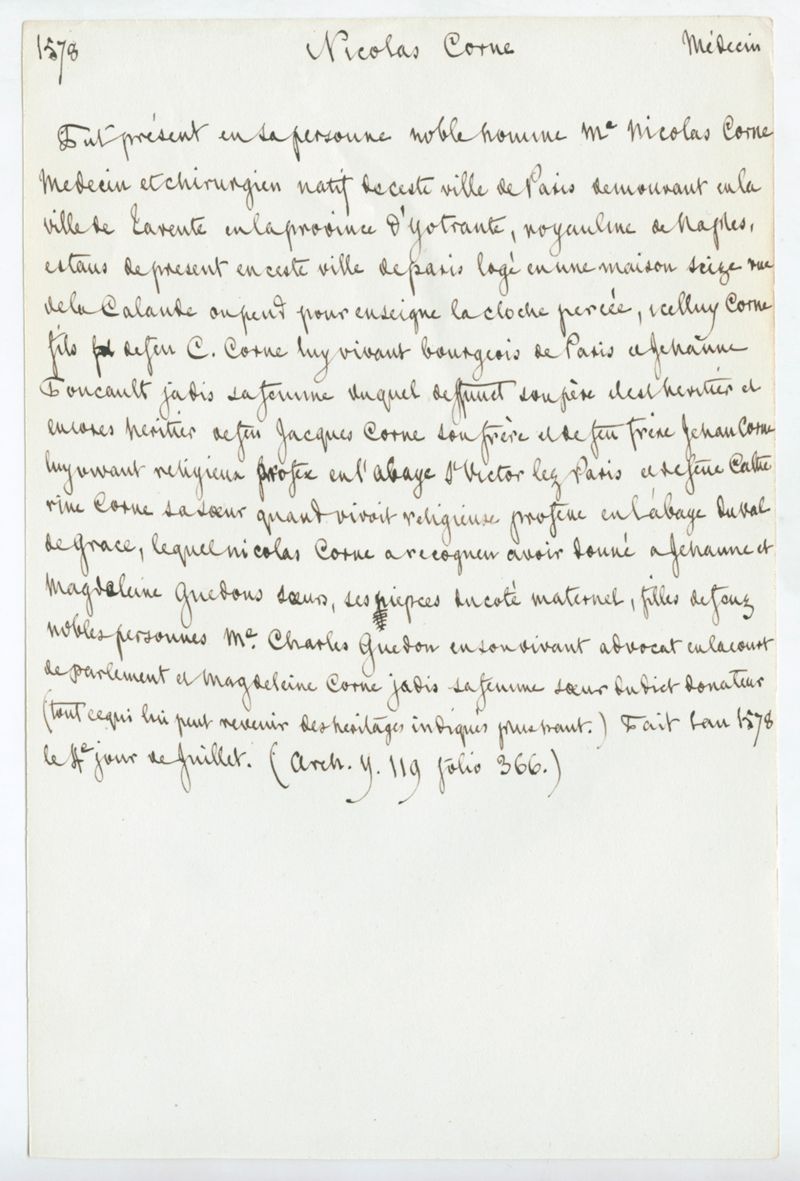 1578 Nicolas Corne Médecin
Fut présent en sa personne noble homme Me Nicolas Corne
Medecin et chirurgien natif de ceste ville de Paris demourant en la
ville de Tarente en la province d'Yotrante, royaulme de Naples,
estans de present en ceste ville de paris logé en une maison seize rue
de la Calande ou pend pour enseigne la cloche percée, icelluy Corne
fils de feu C. Corne luy vivant bourgeois de Paris et Jehanne
Foucault jadis sa femme duquel deffunct son père il est heritier et
encores heritier de feu Jacques Corne son frère et de feu frère Jehan Corne
luy vivant religieux profex en l'abaye St Victor lez Paris et de feue Cathe
rine Corne sa sœur quand vivoit religieuse professe en l'abaye du Val
de Grace, lequel nicolas Corne a recogneu avoir donné a Jehanne et
Magdeleine Guedons sœurs, ses niepces du coté maternel, filles de feuz
nobles personnes Me. Charles Guedon en son vivant advocat en la court
de parlement et Magdeleine Corne jadis sa femme sœur du dict donateur
(tout ce qui lui peut revenir des heritages indiqués plus haut.) Fait l'an 1578
le 4e jour de Juillet. (Arch. Y. 119 folio 366.)